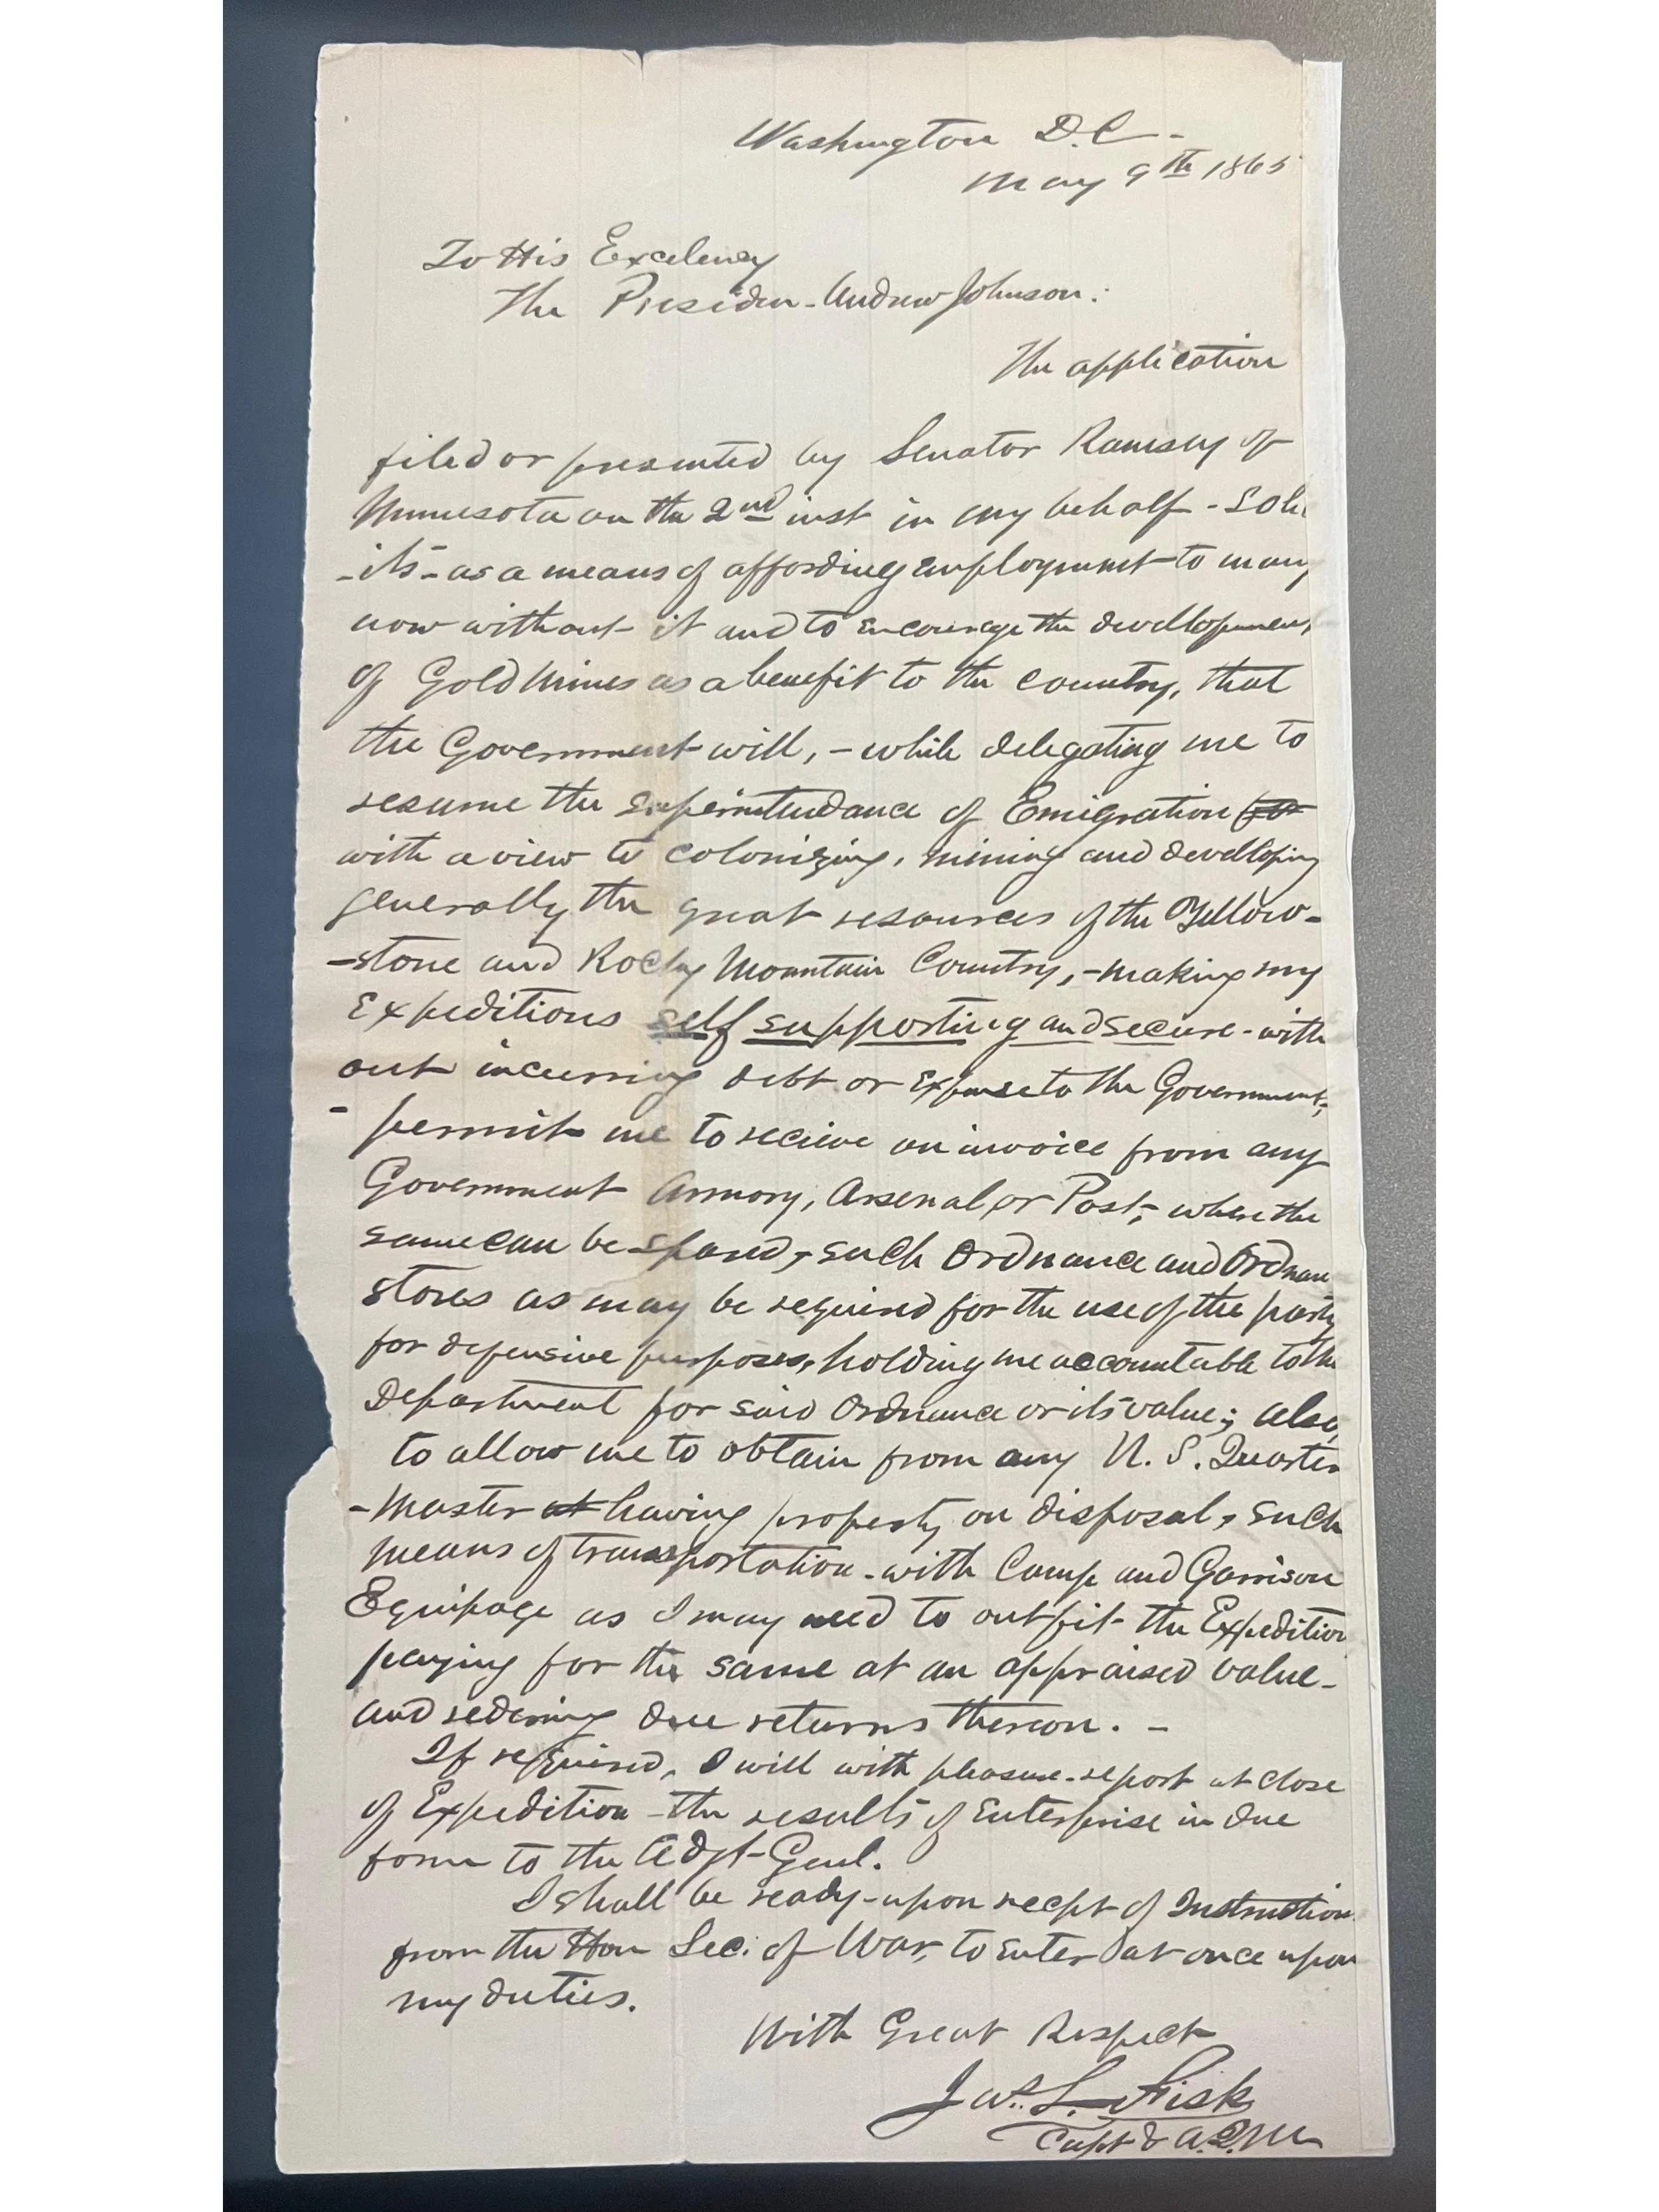 Washington D.C-
May 9th 1865
To His Excelency
The Presiden- Andrew Johnson:
The application
filed or presented by Senator Ramsey of
Minnesota on the 2nd inst in my behalf - solic
-its- as a means of affording employment to many
now without it and to encourage the devellopement
of Gold Mines as a benefit to the country, that
the Government will, - while delegating me to
resume the superintendance of Emigration
with a view to colonizing, mining and develloping
generally the great resources of the Yellow-
-stone and Rocky Mountain Country, - making my
Expeditions self supporting and secure - with
out incurring debt or expense to the Government,
- permit me to recieve on invoice from any
Government Armory, Arsenal or Post, where the
same can be spared, such Ordnance and Ordnan
stores as may be required for the use of the party
for defensive purposes, holding me accountable to the
Department for said Ordnance or its value; also,
to allow me to obtain from any U.S. Quarter
-Master at having property on disposal, such
means of transportation - with Camp and Garrison
Equipage as I may need to outfit the Expedition
paying for the same at an appraised value -
and redering due returns thereon. -
If required, I will with pleasure - report at close
of Expedition - the results of Enterprise in due
form to the Adjt-Genl.
I shall be ready - upon recpt of Instruction
from the Hon Sec. of War, to enter at once upon
my duties.
With Great Respect
Jas. L. Fisk
Capt & A.Q.M